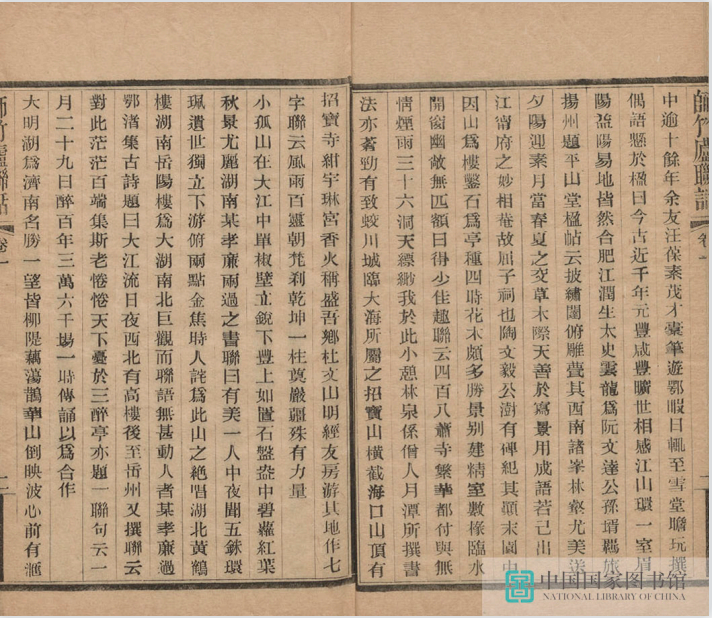 師竹廬聯話 卷一
中逾十餘年余友汪葆素茂才囊筆遊鄂暇日輒至雪堂瞻玩撰
偶語懸於楹曰今古近千年元豐咸豐曠世相感江山環一室眉
陽益陽易地皆然合肥江潤生太史雲龍爲阮文達公孫壻羈旅
揚州題平山堂楹帖云披繡闥俯雕甍其西南諸峯林壑尤美送
夕陽迎素月當春夏之交草木際天善於寫景用成語若己出
江甯府之妙相菴故屈子祠也陶文毅公澍有碑紀其顛末園中
因山爲樓鑿石爲亭種四時花木頗多勝景别建精室數椽臨水
開窗幽敞無匹額曰得少佳趣聯云四百八蕭寺繁華都付與無
情煙雨三十六洞天縹緲我於此小憩林泉係僧人月潭所撰書
法亦蒼勁有致蛟川城臨大海所屬之招寶山橫截海口山頂有
二
招寶寺紺宇琳宮香火稱盛吾鄉杜文山明經友房游其地作七
字聯云風雨百靈朝梵刹乾坤一柱奠巖疆殊有力量
小孤山在大江中單椒壁立銳下豐上如置石盤盎中碧蘿紅葉
秋景尤麗湖南某孝廉雨過之書聯曰有美一人中夜聞五銖環
珮遺世獨立下游俯兩點金焦時人詫爲此山之絶唱湖北黃鶴
樓湖南岳陽樓爲大湖南北巨觀而聯語無甚動人者某孝廉過
鄂渚集古詩題曰大江流日夜西北有高樓後至岳州又撰聯云
對此茫茫百端集斯老惓惓天下憂於三醉亭亦題一聯句云一
月二十九日醉百年三萬六千場一時傳誦以爲合作
大明湖爲濟南名勝一望皆柳隄藕蕩鵲華山倒映波心前有滙
師竹廬聯話 卷一
二
中国国家图书馆
NATIONAL LIBRARY OF CHINA